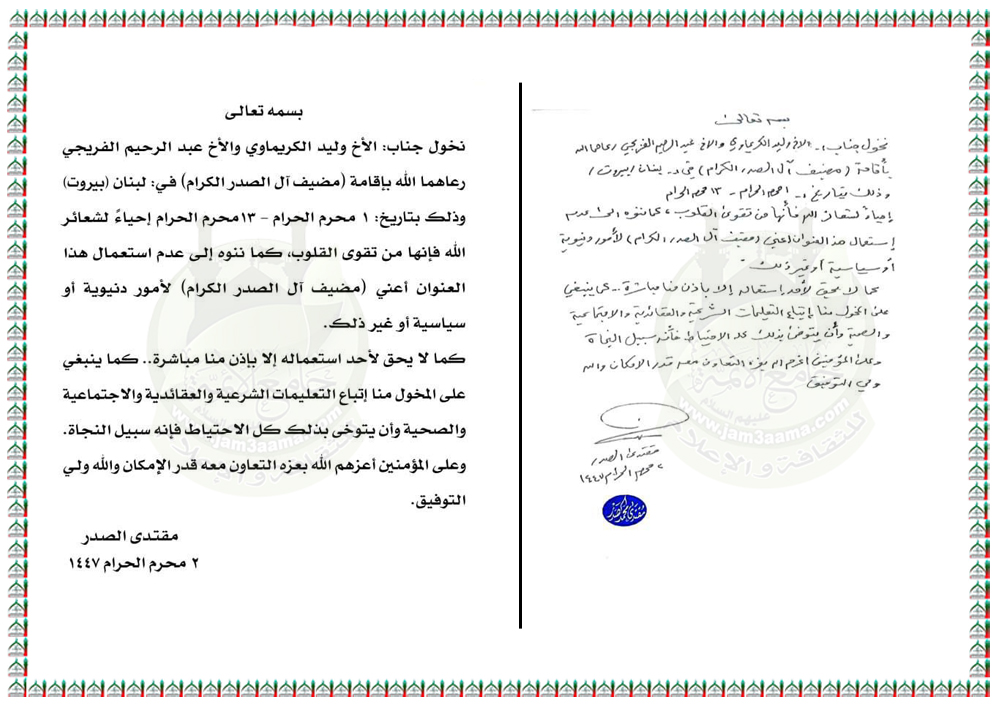 بسمه تعالى
نخول جناب:ـ الاخ وليد الكريماوي والاخ عبد الرحيم الفريجي رعاهما الله
بأقامة (مضيف آل الصدر الكرام) في:ـ لبنان/بيروت/
وذلك بتاريخ:ـ ١محرم الحرام - ١٣ محرم الحرام
إحياءً لشعائر الله فأنها من تقوى القلوب، كما ننوه الى عدم
إستعمال هذا العنوان اعني (مضيف آل الصدر الكرام) لأمور دنيوية
أو سياسية أو غير ذلك
كما لا يحق لأحد إستعماله إلا باذن منا مباشرة.. كما ينبغي
على المخول منا إتباع التعليمات الشرعية والعقائدية والاجتماعية
والصحية وأن يتوخى بذلك كل الاحتياط فأنه سبيل النجاة
وعلى المؤمنين اعزهم الله بعزه التعاون معه قدر الامكان والله
ولي التوفيق
مقتدى الصدر
٢ محرم الحرام ١٤٤٧
بسمه تعالى
نخول جناب: الأخ وليد الكريماوي والأخ عبد الرحيم الفريجي
رعاهما الله بإقامة (مضيف آل الصدر الكرام) في: لبنان (بيروت)
وذلك بتاريخ: ١ محرم الحرام – ١٣محرم الحرام إحياءً لشعائر
الله فإنها من تقوى القلوب، كما ننوه إلى عدم استعمال هذا
العنوان أعني (مضيف آل الصدر الكرام) لأمور دنيوية أو
سياسية أو غير ذلك.
كما لا يحق لأحد استعماله إلا بإذن منا مباشرة.. كما ينبغي
على المخول منا إتباع التعليمات الشرعية والعقائدية والاجتماعية
والصحية وأن يتوخى بذلك كل الاحتياط فإنه سبيل النجاة.
وعلى المؤمنين أعزهم الله بعزه التعاون معه قدر الإمكان والله ولي
التوفيق.
مقتدى الصدر
٢ محرم الحرام ١٤٤٧
جامع الأئمة
عليهم السلام
www.jam3aama.com
للثقافة و الإعلام